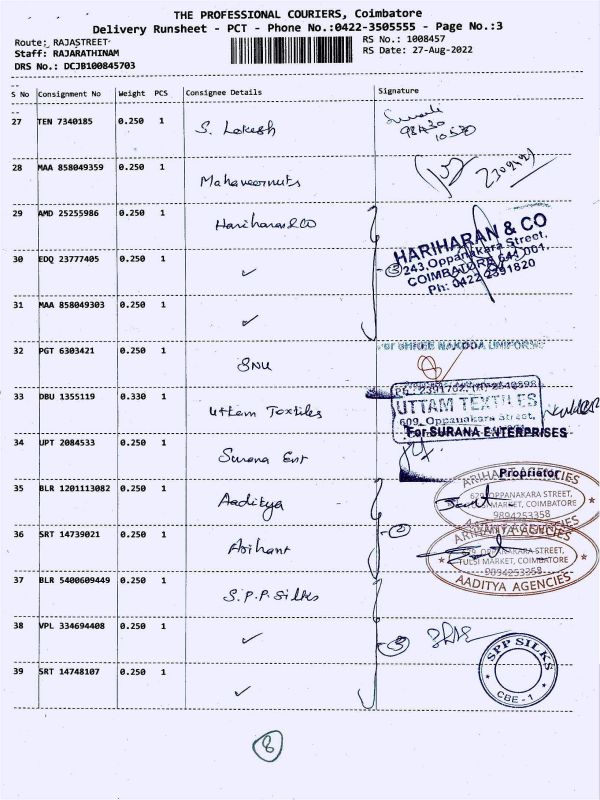 THE PROFESSIONAL COURIERS, Coimbatore
Delivery Runsheet - PCT - Phone No.:0422-3505555 - Page No.:3
Route: RAJASTREET
Staff: RAJARATHINAM
DRS No.: DCJB100845703
RS No.: 1008457
RS Date: 27-Aug-2022
S No Consignment No Weight PCS Consignee Details Signature
27 TEN 7340185 0.250 1 S. Lokesh
28 MAA 858049359 0.250 1 Mahaveernuts
29 AMD 25255986 0.250 1 Hariharan & CO
30 EDQ 23777405 0.250 1 ✓
31 MAA 858049303 0.250 1 ✓
3
HARIHARAN & CO
243, Oppanakara Street,
COIMBATORE 641 001.
Ph: 0422 2391820
32 PGT 6303421 0.250 1 SNU
For SHREE NAKODA UNIFORM
33 DBU 1355119 0.330 1 Uttam Textiles
UTTAM TEXTILES
609, Oppanakara Street,
34 UPT 2084533 0.250 1 Surana Ent
For SURANA ENTERPRISES
Proprietor
35 BLR 1201113082 0.250 1 Aaditya
OPPANAKARA STREET,
MARKET, COIMBATORE
9894253358
36 SRT 14739021 0.250 1 Arihant
2
OPPANAKARA STREET,
TULSI MARKET, COIMBATORE
9894253358
AADITYA AGENCIES
37 BLR 5400609449 0.250 1 S.P.P. Silks
38 VPL 334694408 0.250 1 ✓
39 SRT 14748107 0.250 1 ✓
3
SPP SILKS
CBE - 1
8